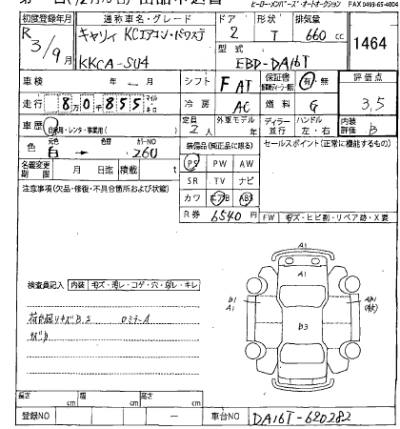 ヒーローメンバーズ・オートオークション FAX 0493-65-4004
初度登録年月 通称車名・グレード ドア 形状 排気量
R 3/9月 キャリィ KCエアコン・パワステ 2 T 660 cc 1464
型式
KKCA-SU4 EBD-DA16T
車検 年 月 シフト F AT 保証書 有・無 評価点
走行 80,855 マイル キロ 冷房 AC 燃料 G 3.5
車歴 自家用・レンタ・事業用( ) 定員 2人 外車モデル 年 ディーラー 並行 ハンドル 左・右 内装評価 B
色 元色 白 → 色 カラーNO 26U 装備品(純正品に限る) セールスポイント(正常に機能するもの)
PS PW AW
名義変更期限 月 日迄 積載 t SR TV ナビ
注意事項(欠品・修復・不具合箇所および状態) カワ エアB ABS
R券 6540 円 FW キズ・ヒビ割・リペア跡・X要
A1
検査員記入 内装 キズ・汚レ・コゲ・穴・切レ・キレ
A1
B1
A1
B3
荷台廻りキズB,S ロミラーA
A1
長さ cm 幅 cm 高さ cm
登録NO 車台NO DA16T-620282